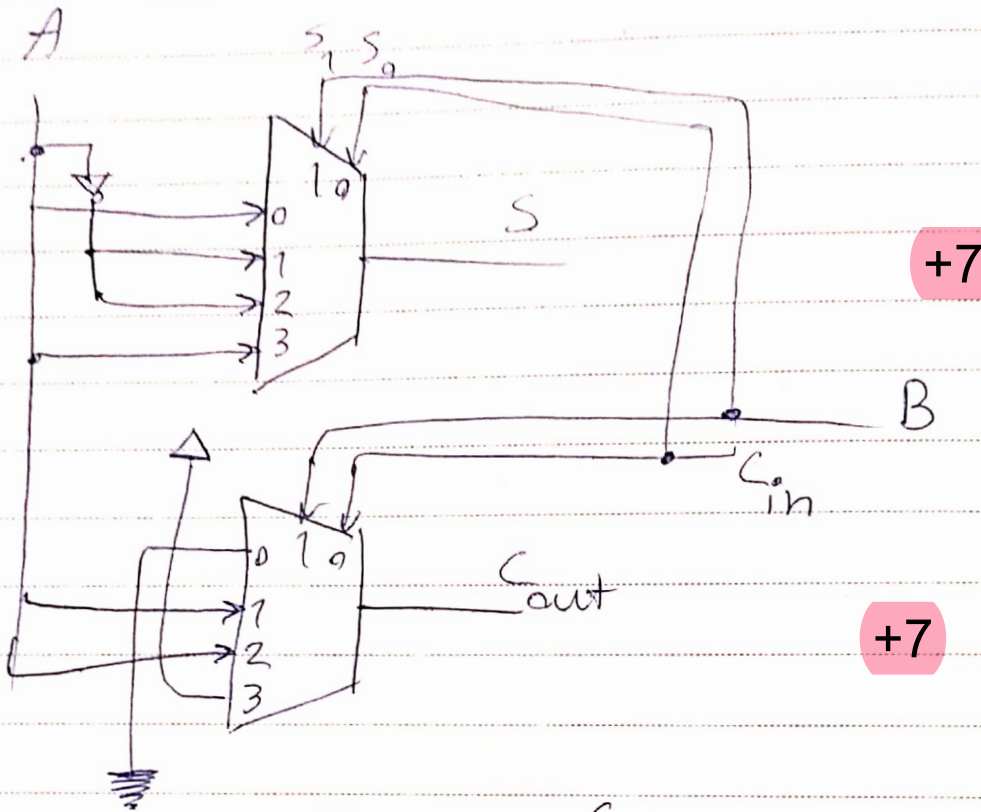 A
S1 S0
1 0
0
1
2
3
S
+7
B
Cin
1 0
0
1
2
3
Cout
+7